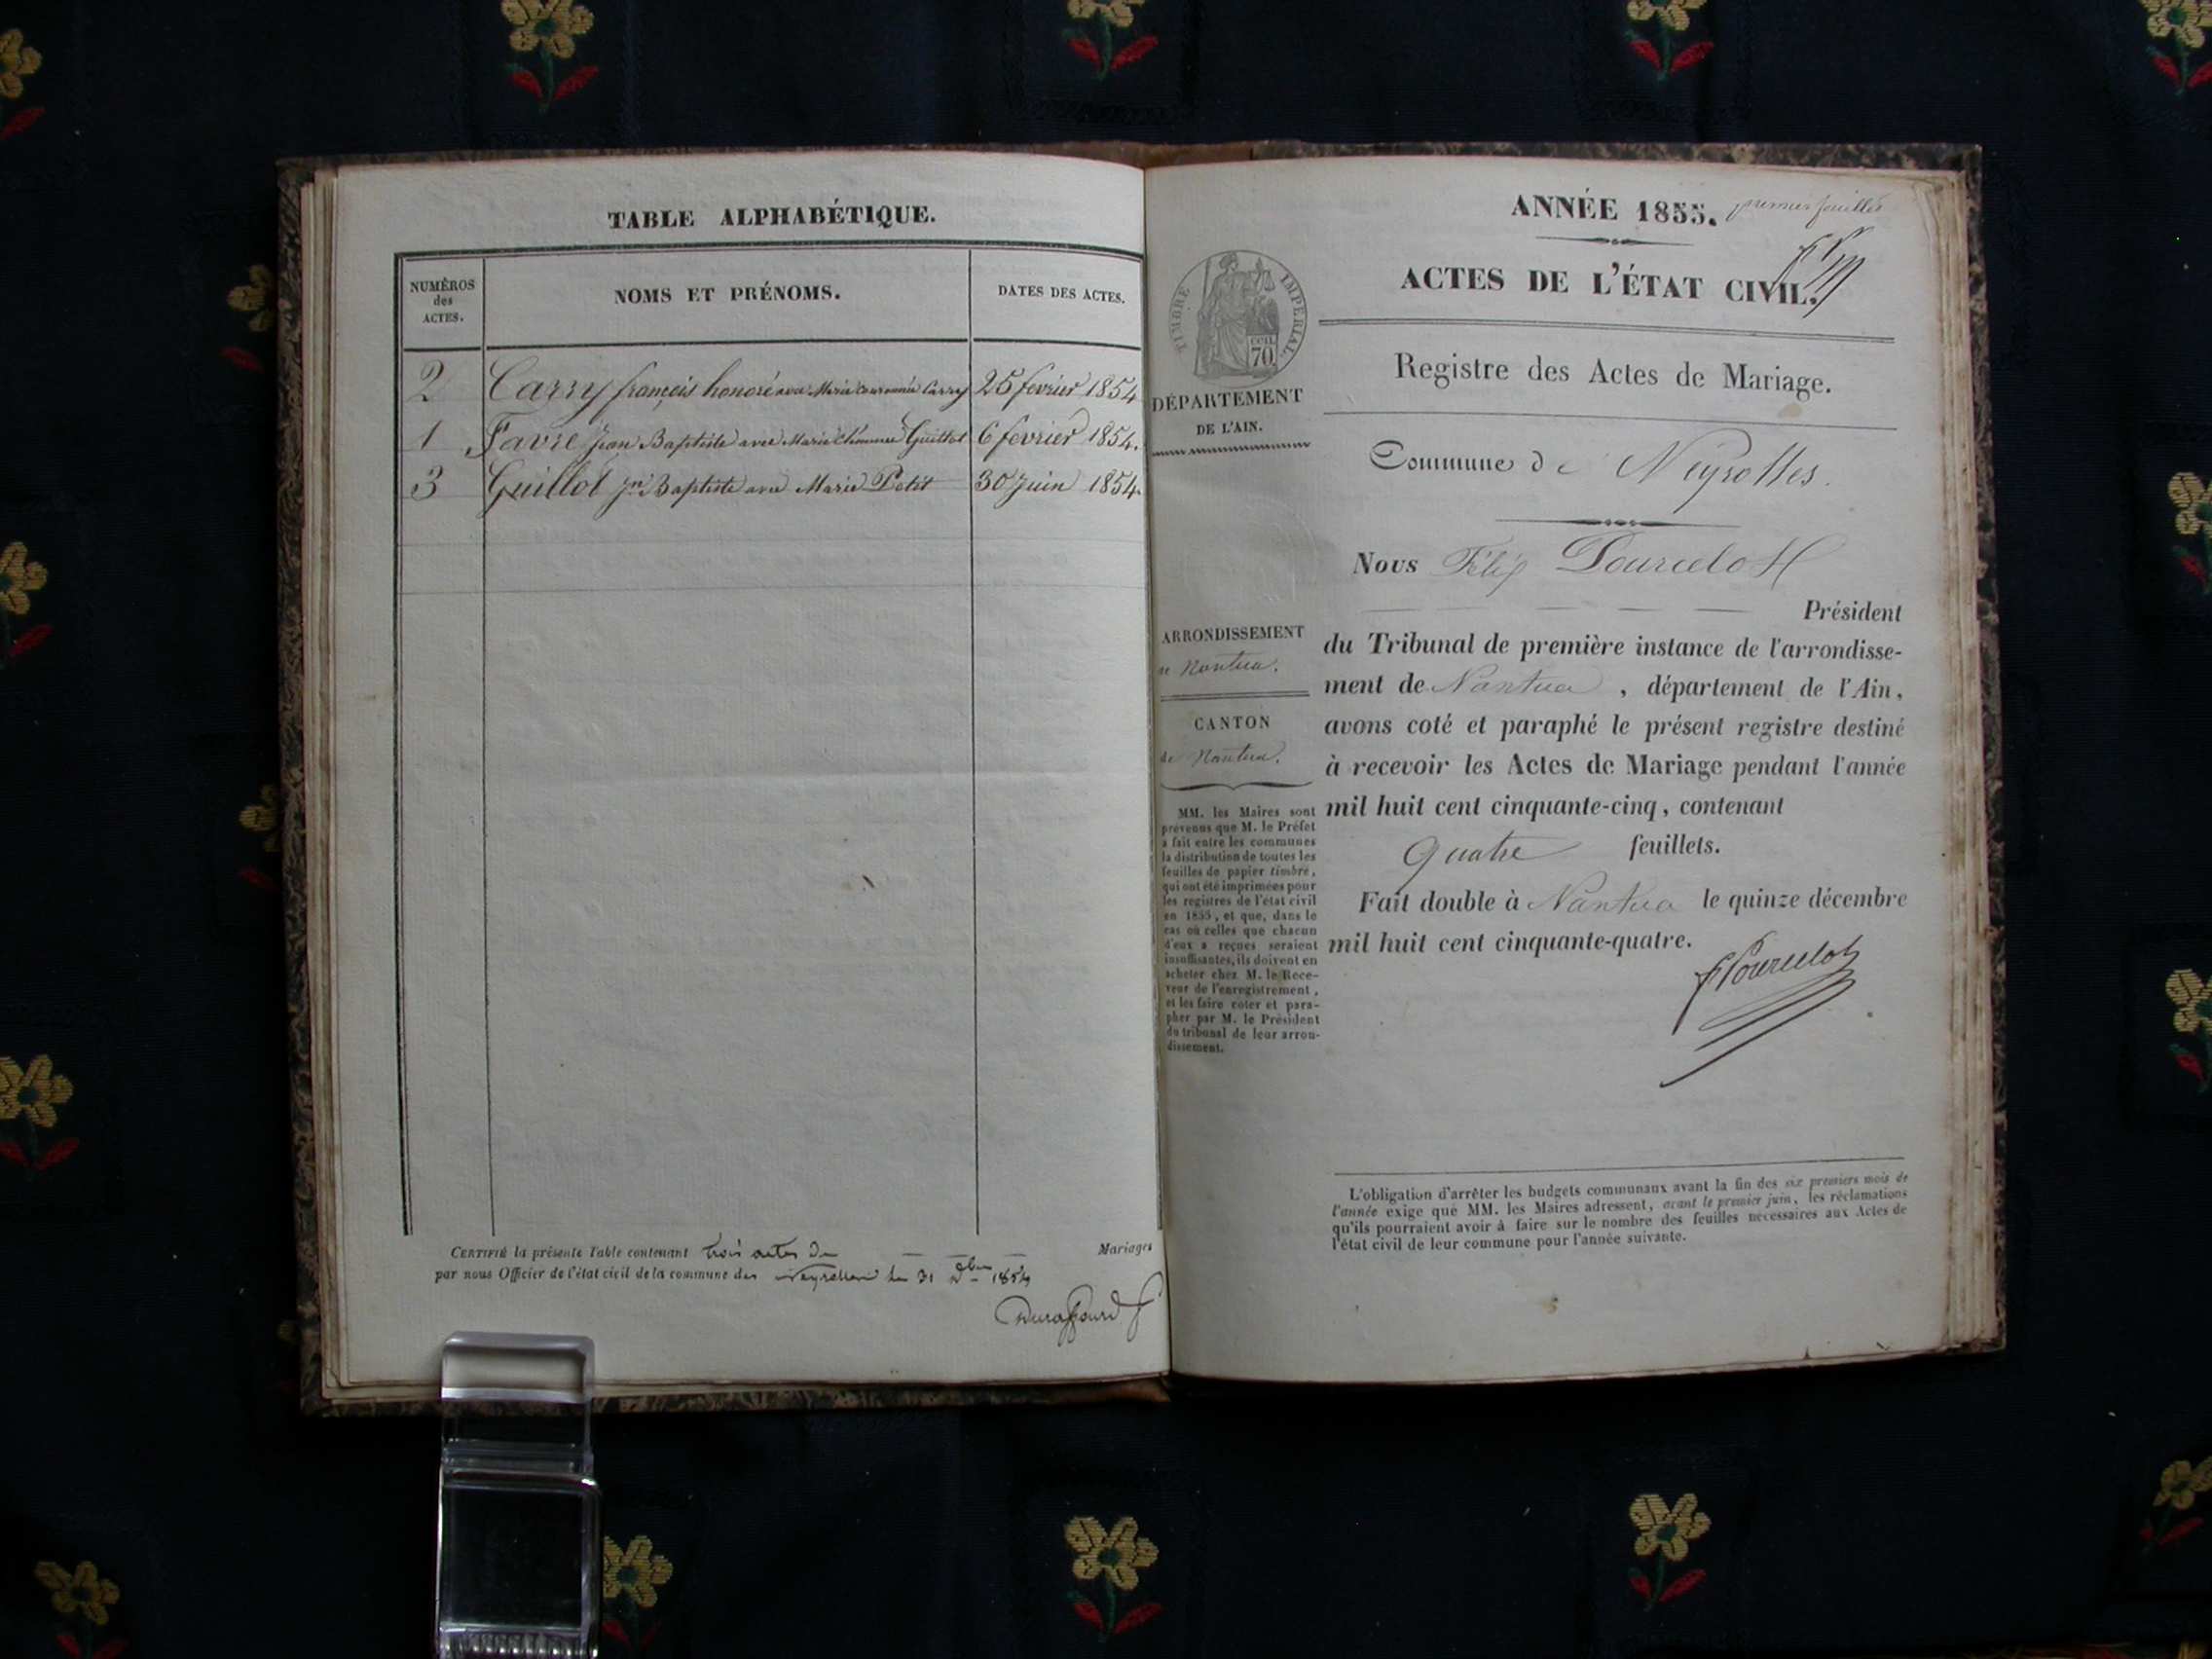 TABLE ALPHABÉTIQUE.
NUMÉROS
des
ACTES.
NOMS ET PRÉNOMS.
DATES DES ACTES.
2 Carry françois honoré avec Marie Carry 25 fevrier 1854
1 Favre Jean Baptiste avec Marie Guillot 6 fevrier 1854.
3 Guillot Jn Baptiste avec Marie Petit 30 Juin 1854.
CERTIFIÉ la présente Table contenant trois actes de Mariages
par nous Officier de l'état civil de la commune des Neyrolles le 31 Xbre 1854
Duraffourd
ANNÉE 1855. premier feuillet
ACTES DE L'ÉTAT CIVIL.
TIMBRE IMPÉRIAL.
70
DÉPARTEMENT
DE L'AIN.
Registre des Actes de Mariage.
Commune de Neyrolles.
Nous Félix Pourcelot
Président
ARRONDISSEMENT
de Nantua.
CANTON
de Nantua.
du Tribunal de première instance de l'arrondisse-
ment de Nantua, département de l'Ain,
avons coté et paraphé le présent registre destiné
à recevoir les Actes de Mariage pendant l'année
mil huit cent cinquante-cinq, contenant
quatre feuillets.
Fait double à Nantua le quinze décembre
mil huit cent cinquante-quatre.
F Pourcelot
MM. les Maires sont
prévenus que M. le Préfet
a fait entre les communes
la distribution de toutes les
feuilles de papier timbré,
qui ont été imprimées pour
les registres de l'état civil
en 1855, et que, dans le
cas où celles que chacun
d'eux a reçues seraient
insuffisantes, ils doivent en
acheter chez M. le Rece-
veur de l'enregistrement,
et les faire coter et para-
pher par M. le Président
du tribunal de leur arron-
dissement.
L'obligation d'arrêter les budgets communaux avant la fin des six premiers mois de
l'année exige que MM. les Maires adressent, avant le premier juin, les réclamations
qu'ils pourraient avoir à faire sur le nombre des feuilles nécessaires aux Actes de
l'état civil de leur commune pour l'année suivante.